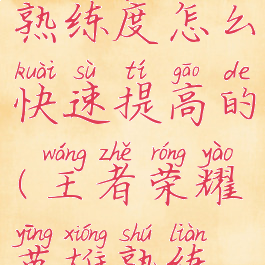 熟练度怎么
kuài sù tí gāo de
快速提高的
wáng zhě róng yào
(王者荣耀
yīng xióng shú liàn
英雄熟练